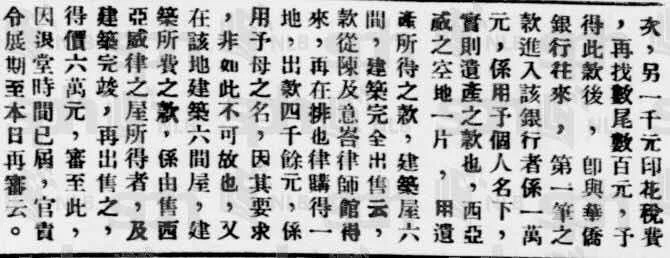 次，另一千元印花稅費
，再找數尾數百元，予
得此款後，卽與華僑
銀行往來，第一筆之
款進入該銀行者係一萬
元，係用予個人名下，
實則遺產之款也，西亞
威之空地一片，用遺
產所得之款，建築屋六
間，建築完全出售云，
款從陳及意峇律師館得
來，再在排也律購得一
地，出款四千餘元，係
用予母之名，因其要求
，非如此不可故也，又
在該地建築六間屋，建
築所費之款，係由售西
亞威律之屋所得者，及
建築完竣，再出售之，
得價六萬元，審至此，
因退堂時間已屆，官責
令展期至本日再審云。